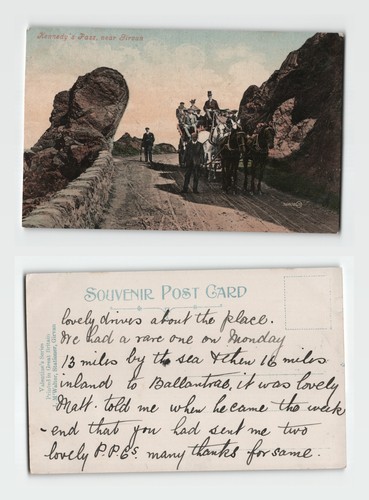 Kennedy's Pass, near Girvan
SOUVENIR POST CARD
Valentine's Series
Printed in Great Britain
lovely drives about the place.
We had a rare one on Monday
13 miles by the sea & then 16 miles
inland to Ballantrae, it was lovely
Matt. told me when he came the week
-end that you had sent me two
lovely P.P.Cs. many thanks for same.